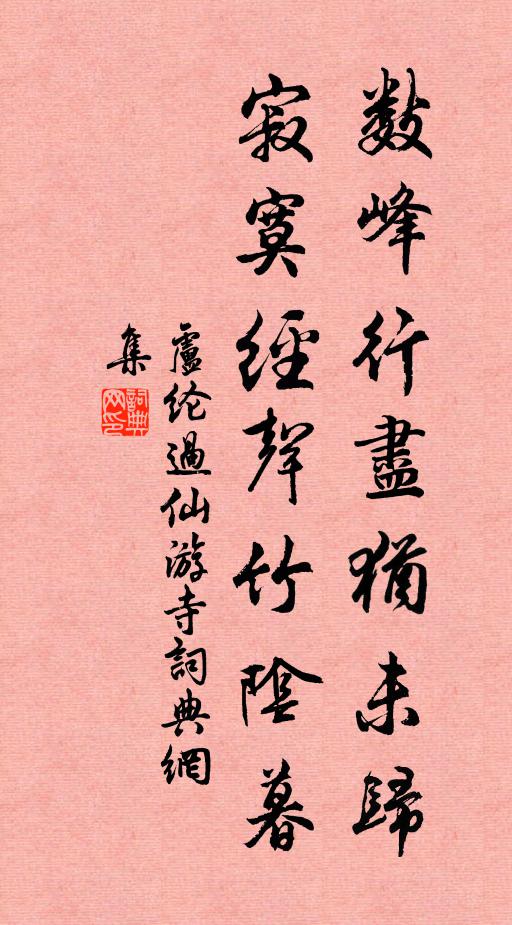 數峰行盡猶未歸
寂寞經聲竹陰暮
盧纶過仙游寺詞典網
集
詞典
网印